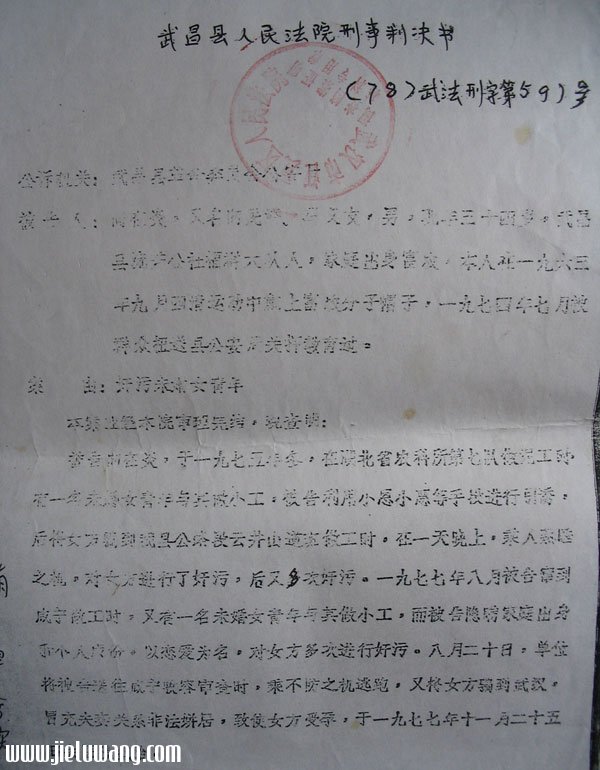 武昌县人民法院刑事判决书
（78）武法刑字第59）号
公诉机关：武昌县
被告人：男，现年三十四岁，武昌
县 公社 大队人，家庭出身富农，本人在一九六三
年九月四清运动中戴上 分子帽子，一九七四年七月被
群众扭送县公安局关押教育过。
案 由：奸污未婚女青年
本案业经本院审理完结，现查明：
被告 ，于一九七五年冬，在湖北省农科所第七队做瓦工时
有一名未婚女青年与其做小工。被告利用小恩小惠等手段进行引诱，
后将女方骗到 县公路 道班做工时，在一天晚上，乘人熟睡
之机，对女方进行了奸污，后又多次奸污。一九七七年八月被告窜到
咸宁做工时，又有一名未婚女青年与其做小工，而被告隐瞒家庭出身
和个人 ，以恋爱为名，对女方多次进行奸污。八月二十日，单位
将被告送往咸宁收容审查时，乘不防之机逃跑，又将女方骗到武汉，
冒充夫妻关系非法姘居，致使女方受孕，于一九七七年十一月二十五
www.jieluwang.com